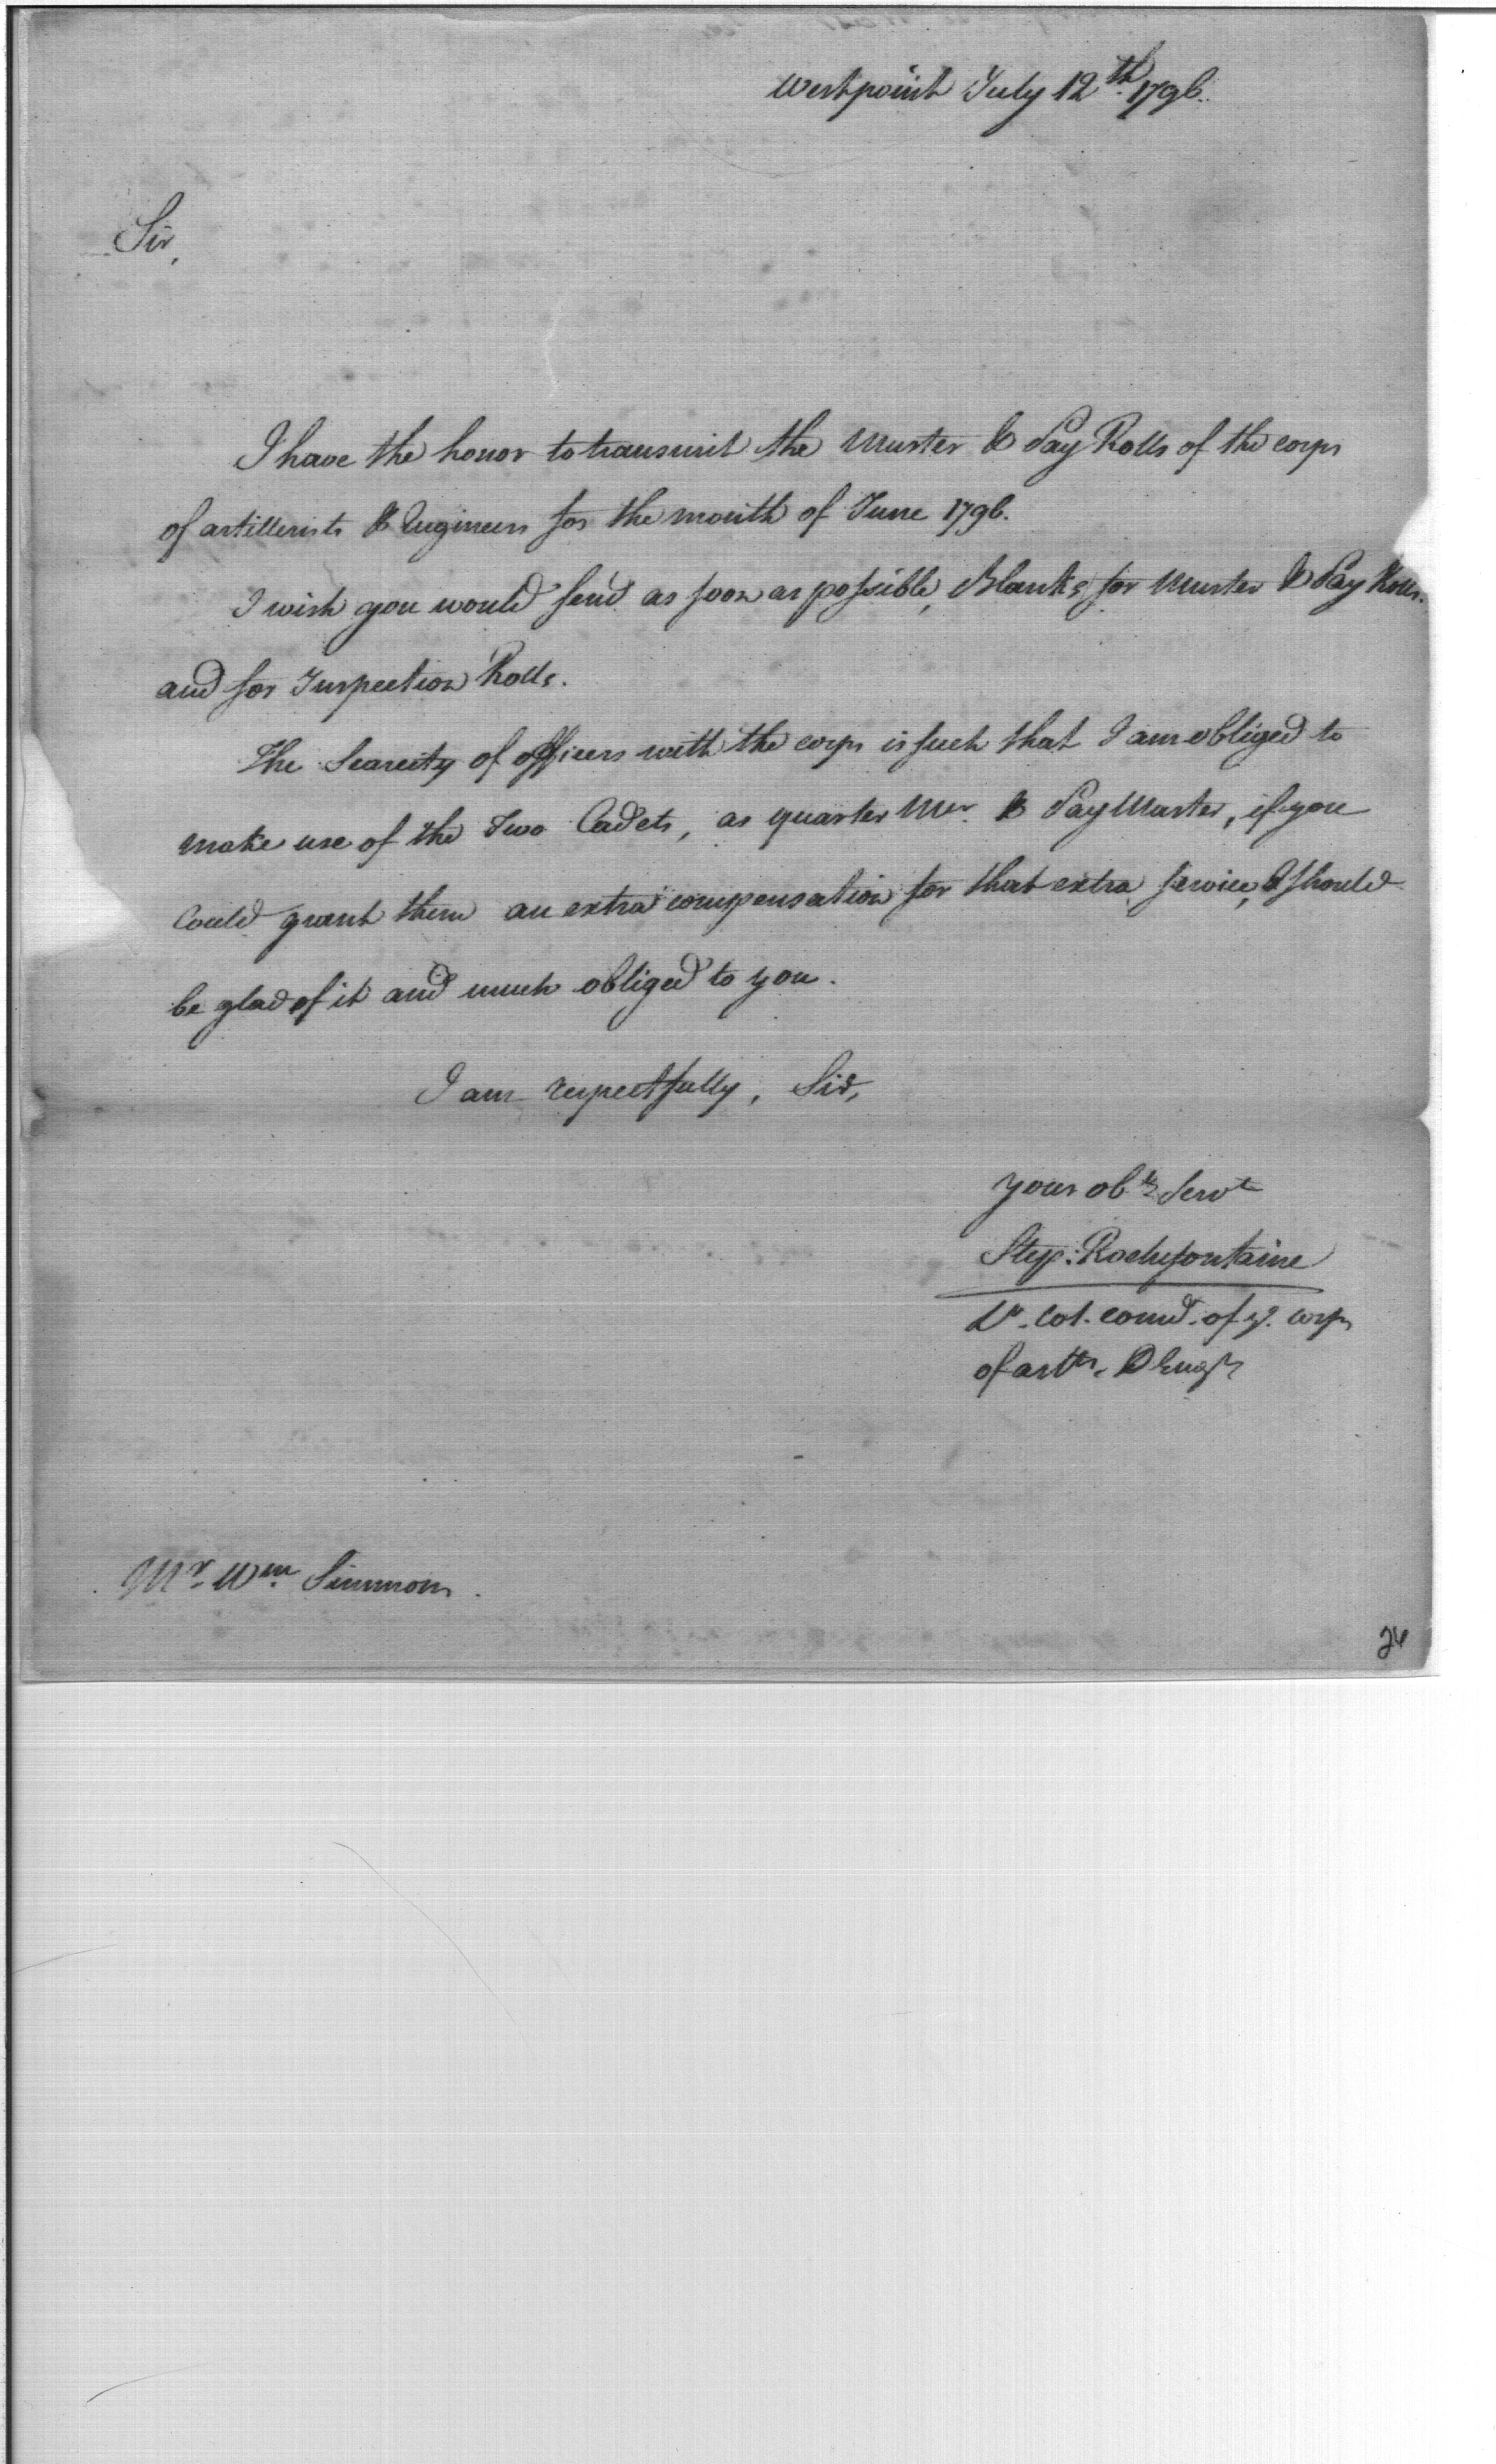 Westpoint July 12th. 1796.
Sir,
I have the honor to transmit the Muster & Pay Rolls of the corps
of artillerists & Engineers for the month of June 1796.
I wish you would send as soon as possible, Blanks for Muster & Pay Rolls.
and for Inspection Rolls.
The Scarcity of officers with the corps is such that I am obliged to
make use of the Two Cadets, as quarter Mr. & PayMaster, if you
Could grant them an extra compensation for that extra service, I should
be glad of it and much obliged to you.
I am respectfully, Sir,
your obt Servt
Step: Rochefontaine
Lt. Col. comd. of ye. corps
of arts. & Engrs
Mr. Wm. Simmons.
24